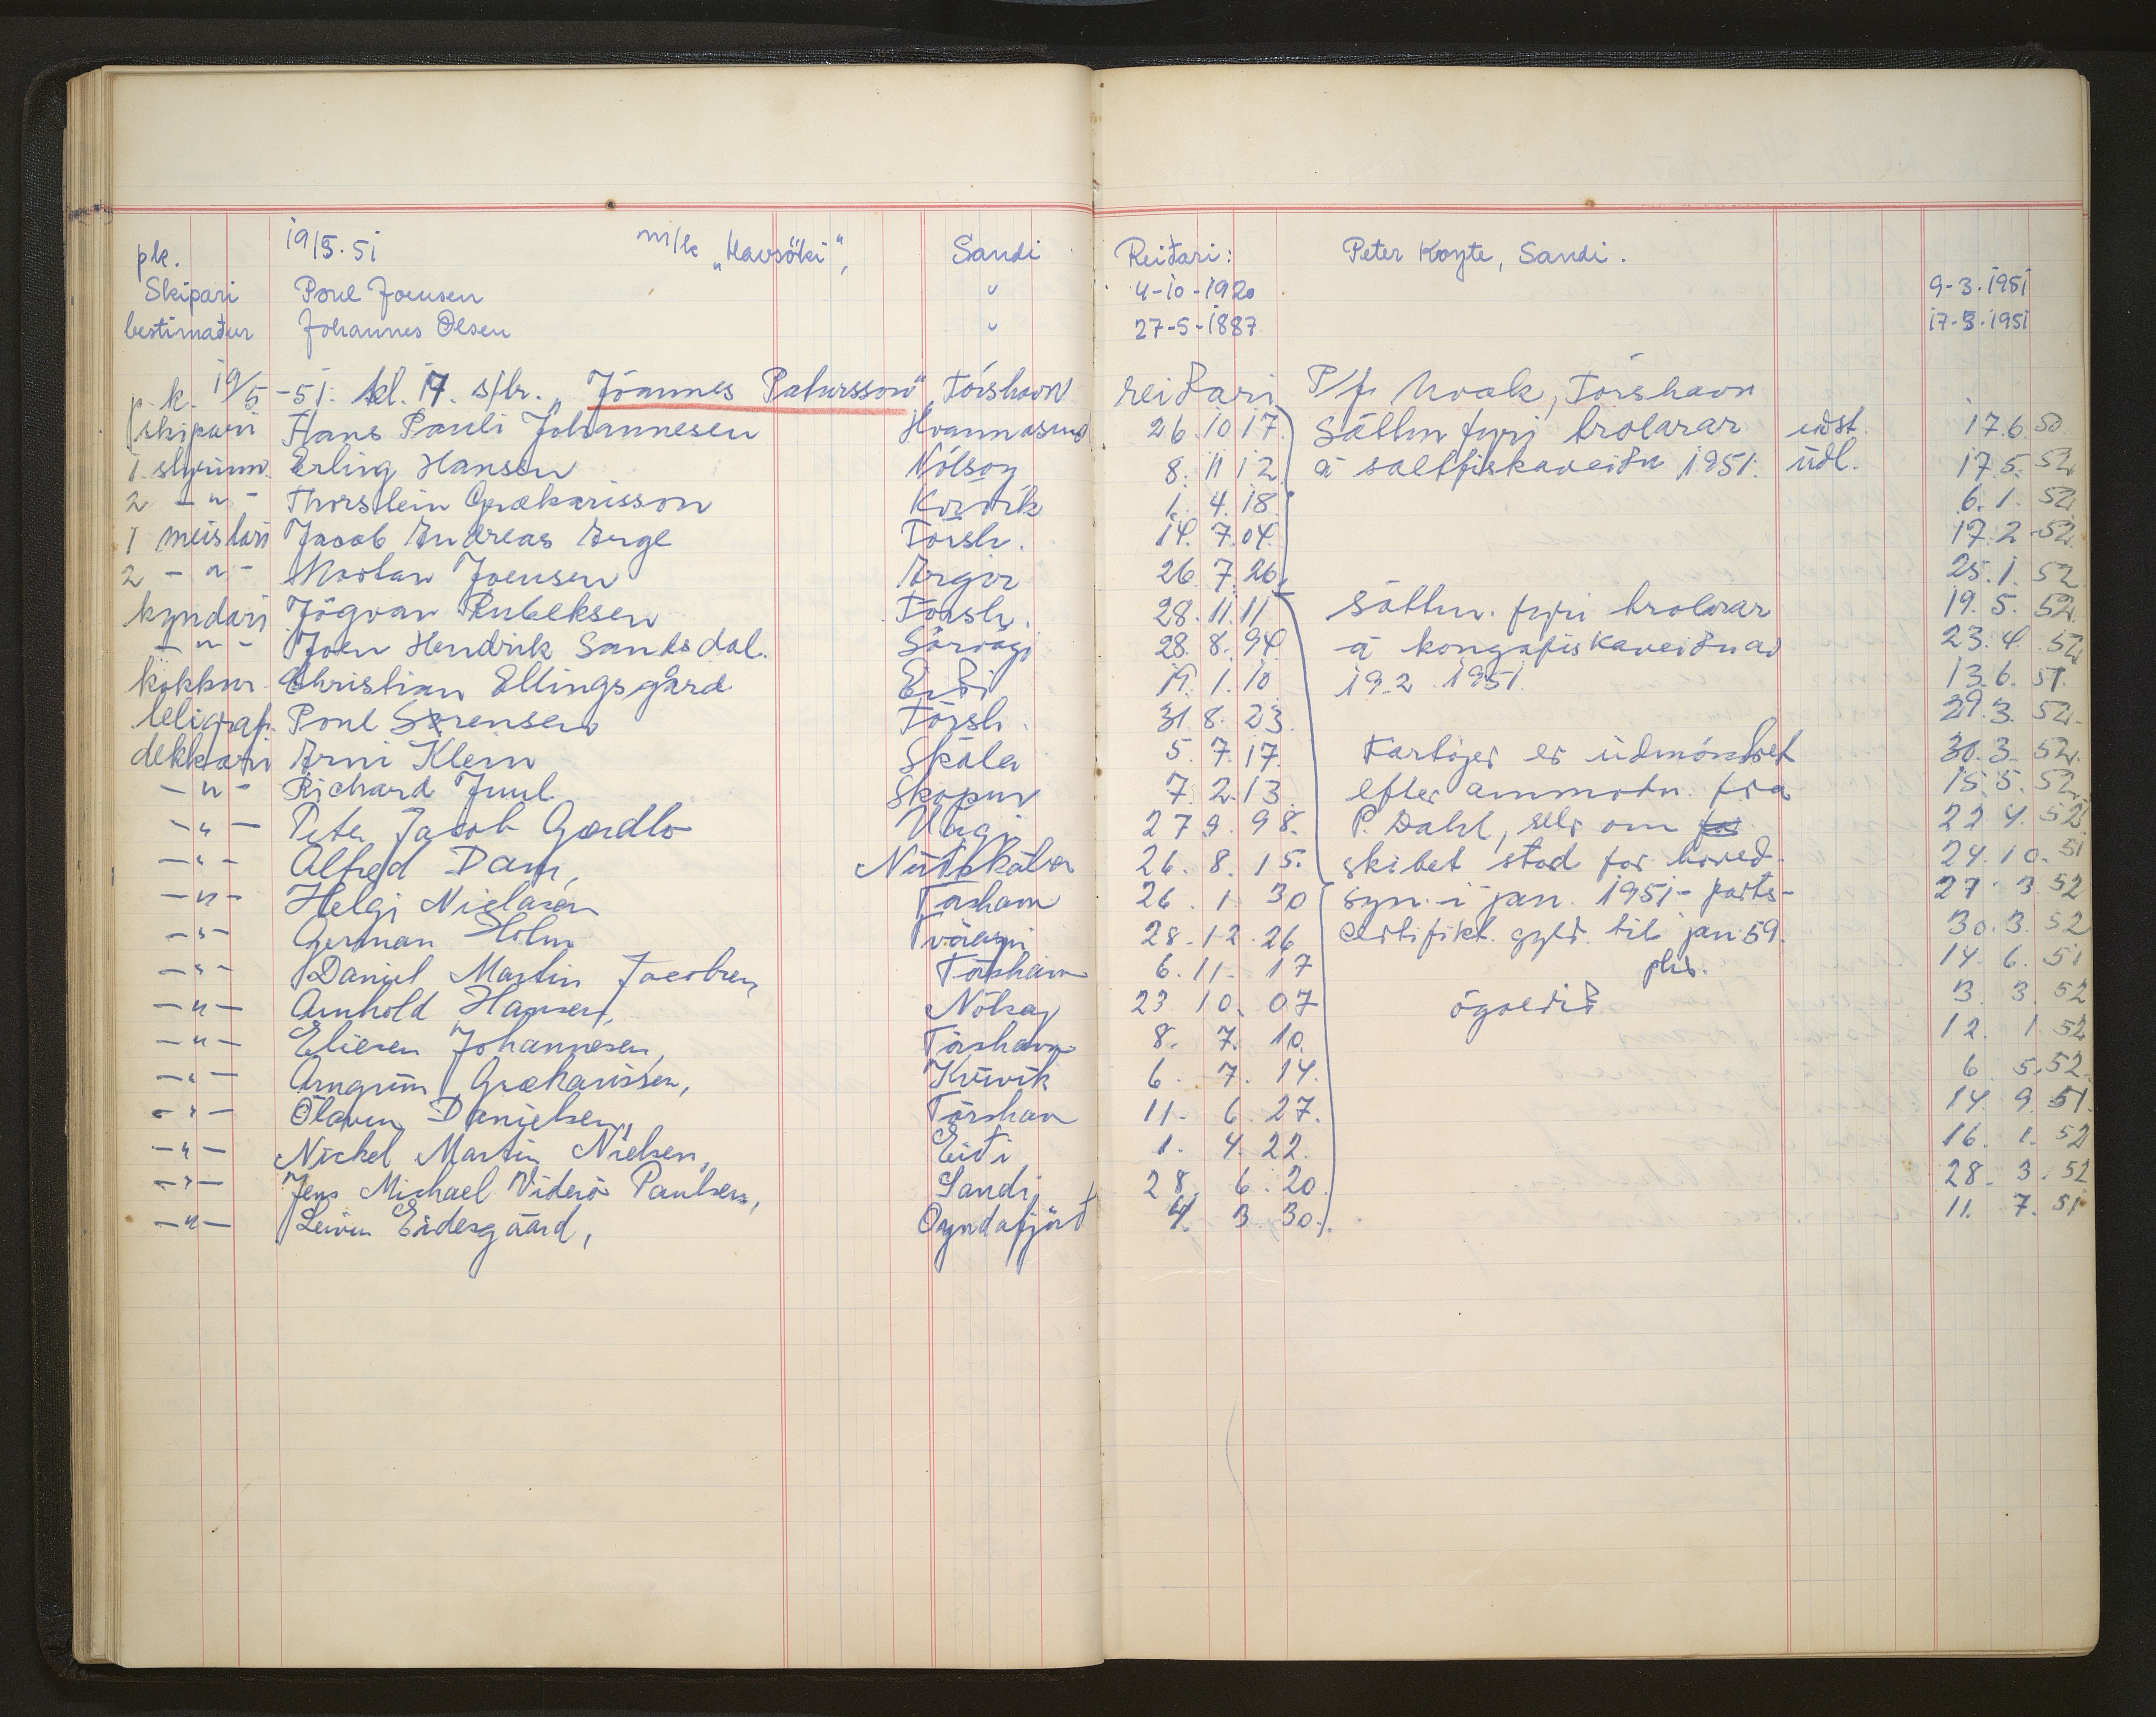 plk. 19/5.51 m/k „Havsöki", Sandi Reiðari: Peter Koyte, Sandi.
Skipari Poul Joensen " 4-10-1920 9-3.1951
bestimaður Johannes Olsen " 27-5-1887 17-3.1951
p.k. 19/5-51. kl. 17. s/tr. „Jóannes Patursson" Tórshavn reiðari P/f Kvak, Tórshavn
skipari Hans Pauli Johannesen Hvannasund 26.10.17. Sáttm fyri trolarar udst. 17.6.50
1. stýrim. Erling Hansen Nólsoy 8.11.12. á saltfiskaveiðu 1951. údl. 17.5.52
2 -"- Thorstein Grækarisson Kvívík 1.4.18. 6.1.52
1 meistari Jacob Andreas Arge Tórsh. 14.7.04. 17.2-52.
2 -"- Joensen Argir 26.7.26. 25.1.52
kyndari Jógvan Rubeksen Tórsh. 28.11.11 Sáttm. fyri trolarar 19.5.52.
-"- Joen Hendrik Sandsdal. Sörvági 28.8.94. á kongafiskaveiðu av 23.4.52
kokkur Christian Ellingsgård Eiði 19.1.10 19.2.1951. 13.6.51.
telegraf. Poul Sørensen Tórsh. 31.8.23. 29.3.52.
dekkari Arni Klein Skála 5.7.17. Fartöjet er údmönstret 30.3.52.
-"- Richard Juul Skopun 7.2.13. efter anmodn. fra 15.5.52
-"- Peter Jacob Gærdbo Vági 27 9.98. P. Dahl, selv om for 22 4.52.
-"- Alfred Dam, Norðskála 26.8.15. skibet stod for hoved- 24.10.51
-"- Helgi Nielasen Tórshavn 26.1.30 syn i jan. 1951- farts- 27.3.52
-"- German Holm Tvöroyri 28.12.26 certifikt. gyld. til jan 59. 30.3.52
-"- Daniel Martin Jacobsen, Tórshavn 6.11.17 plis. 14.6.51
-"- Arnhold Hansen, Nólsoy 23 10.07 ógoldið 3.3.52
-"- Eliesen Johannesen, Tórshavn 8.7.10. 12.1.52
-"- Arngrim Grækarissen, Kvívík 6.7.14. 6 5.52.
-"- Ólavur Danjelsen, Tórshavn 11.6.27. 14.9.51.
-"- Nickel Martin Nielsen, Eiði 1.4.22. 16.1.52
-"- Jens Michael Viderö Paulsen, Sandi, 28.6.20. 28.3.52
-"- Leivur Eidesgaard, Oyndafjörð 4.3.30. 11.7.51